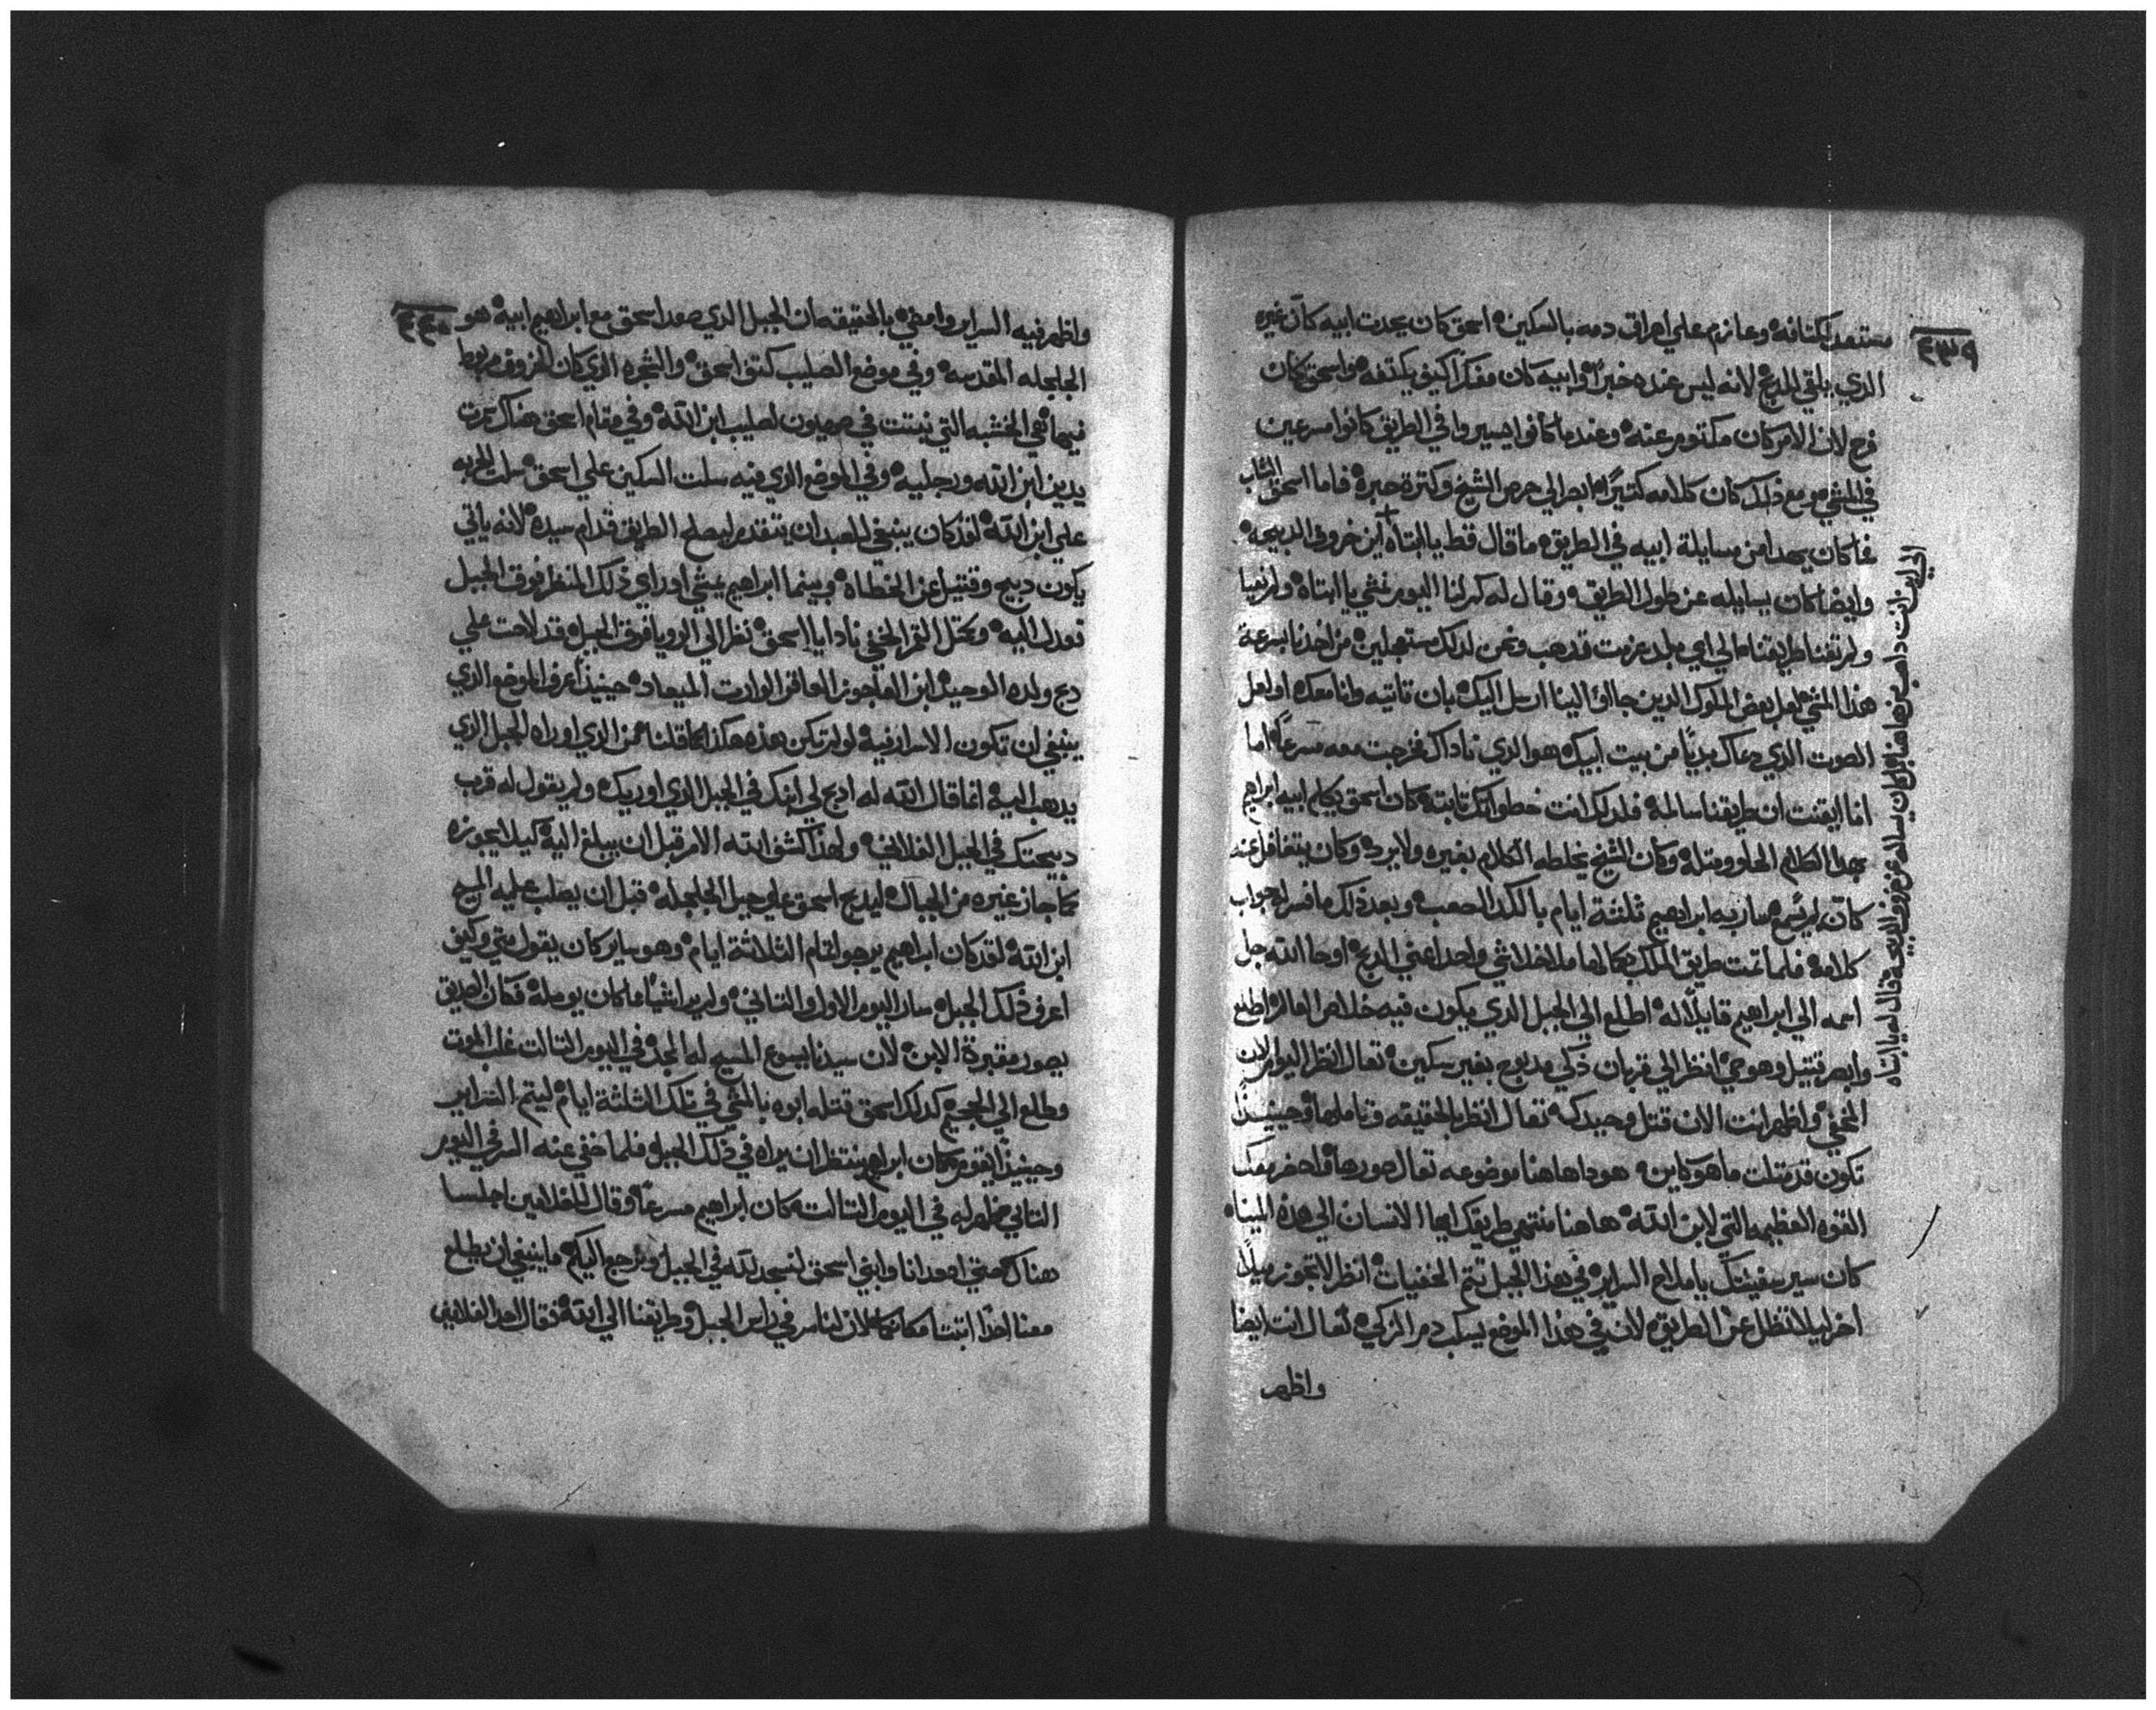 ٤٣٩
مستعد لكتافه وعازم علي اهراق دمه بالسكين اسحق كان يحدت ابيه كان غيره
الدي يلقي للدبح لانه ليس عنده خبر وابيه كان مفكرا كيف يكتفه واسحق كان
فرح لان الامر كان مكتوم عنه وعندما كانوا يسيروا في الطريق كانوا مسرعين
في المشي ومع ذلك كان كلامه كتيرا ابصر الي حرص الشيخ وكترة حبره فاما اسحق الشاب
فما كان يهدا من مسايلة ابيه في الطريق ما قال قط يا ابتاه اين خروف الدبيحه
وايضا كان يسايله عن طول الطريق وقال له كم لنا اليوم نمشي يا ابتاه ولم نعيا
ولم تفنا طريقنا الي اي بلد عزمت تدهب ونحن لدلك مستعجلين من اخدنا بسرعة
هدا المشي لعل بعض الملوك الدين جاوا الينا ارسل اليك بان تاتيه وانا معك او لعل
الصوت الدي دعاك بديا من بيت ابيك هو الدي ناداك فخرجت معه مسرعا اما
انا ايقنت ان طريقنا سالمة فلدلك انت خطواتك تابته كان اسحق يكلم ابيه ابراهيم
بهدا الكلام الحلو ومتله وكان الشيخ يخلطه الكلام بغيره ولا يرد وكان يتغافل عنه
كان لم يسمع سار به ابراهيم تلتة ايام بالكد الصعب وبعد ذلك ما فسر له جواب
كلامه فلما تمت طريق الملك بكمالها ما خلا شي واحد اعني الدبح اوحا الله جل
اسمه الي ابراهيم قايلا له اطلع الي الجبل الدي يكون فيه خلاص العالم اطلع
وابصر قتيل وهو حي انظر الي قربان ذكي مدبوح بغير سكين تعال انظر اليوم الابن
المخفي واظهر انت الان قتل وحيدك تعال انظر بالحقيقه وتاملها وحينيذ
تكون قد متلت ما هو كاين هودا هاهنا موضوعه تعال صورها واحضر معك
القوه العظيمه التي لابن الله هاهنا منتهي طريقك ايها الانسان الي هده المينا
كان سير سفينتك يا ملاح السراير في هدا الجبل تتم الخفيات انظر لا تجوز ميلا
اخر ليلا تظل عن الطريق لان في هدا الموضع يسكب دم الزكي تعال انت ايضا
واظهر
الي اين انت داهب من هاهنا بل كان يساله عن خروف الدبيحه قال له يا ابتاه
٤٤٠
واظهر فيه السراير وامضي بالحقيقه ان الجبل الدي صعد اسحق مع ابراهيم ابيه هو
الجلجله المقدسه وفي موضع الصليب كتف اسحق والشجره الدي كان الخروف مربوط
فيها هي الخشبه التي نبتت في صهيون لصليب ابن الله وفي مقام اسحق هناك سمرت
يدين ابن الله ورجليه وفي الموضع الدي فيه سلت السكين علي اسحق سلت الحربه
علي ابن الله لقد كان ينبغي للعبد ان يتقدم ليصلح الطريق قدام سيده لانه ياتي
يكون دبيح وقتيل عن الخطاه وبينما ابراهيم يمشي اد راي ذلك المنظر فوق الجبل
نظر الي الرويا فوق الجبل قد لاحت علي
دبح ولده الوحيد ابن العاجوز العاقر الوارت الميعاد حينيذ اعرف الموضع الدي
ينبغي ان تكون الاسرار فيه لو لم تكن هده هكدا كما قلنا فمن الدي اوراه الجبل الدي
يدهب اليه انما قال الله له ادبح لي ابنك في الجبل الدي اوريك ولم يقول له قرب
دبيحتك في الجبل الفلاني ولهدا كشف الله الامر قبل ان يبلغ اليه كيلا يجوزه
كما جاز غيره من الجبال ليدبح اسحق علي جبل الجلجله قبل ان يصلب عليه المسيح
ابن الله لقد كان ابراهيم يرجو لتمام التلاتة ايام وهو ساير كان يقول متي وكيف
اعرف ذلك الجبل سار اليوم الاول والتاني ولم يرا شيا ما كان يومله فكان الصديق
يصور مقبرة الابن لان سيدنا يسوع المسيح له المجد في اليوم التالت غلب الموت
وطلع الي الجحيم كدلك اسحق قتله ابوه بالمشي في تلك التلتة ايام ليتم السراير
وحينيذ كان ابراهيم ينتظر ان يراه في ذلك الجبل فلما خفي عنه السر في اليوم
التاني ظهر له في اليوم التالت كان ابراهيم مسرعا وقال للغلامين اجلسا
هناك حتي اصعد انا وابني اسحق لنسجد لله في الجبل ونرجع اليكم ما ينبغي ان يطلع
معنا احدا اتبتا مكانكما في راس الجبل وطريقنا الي الله فقال احد الغلامين